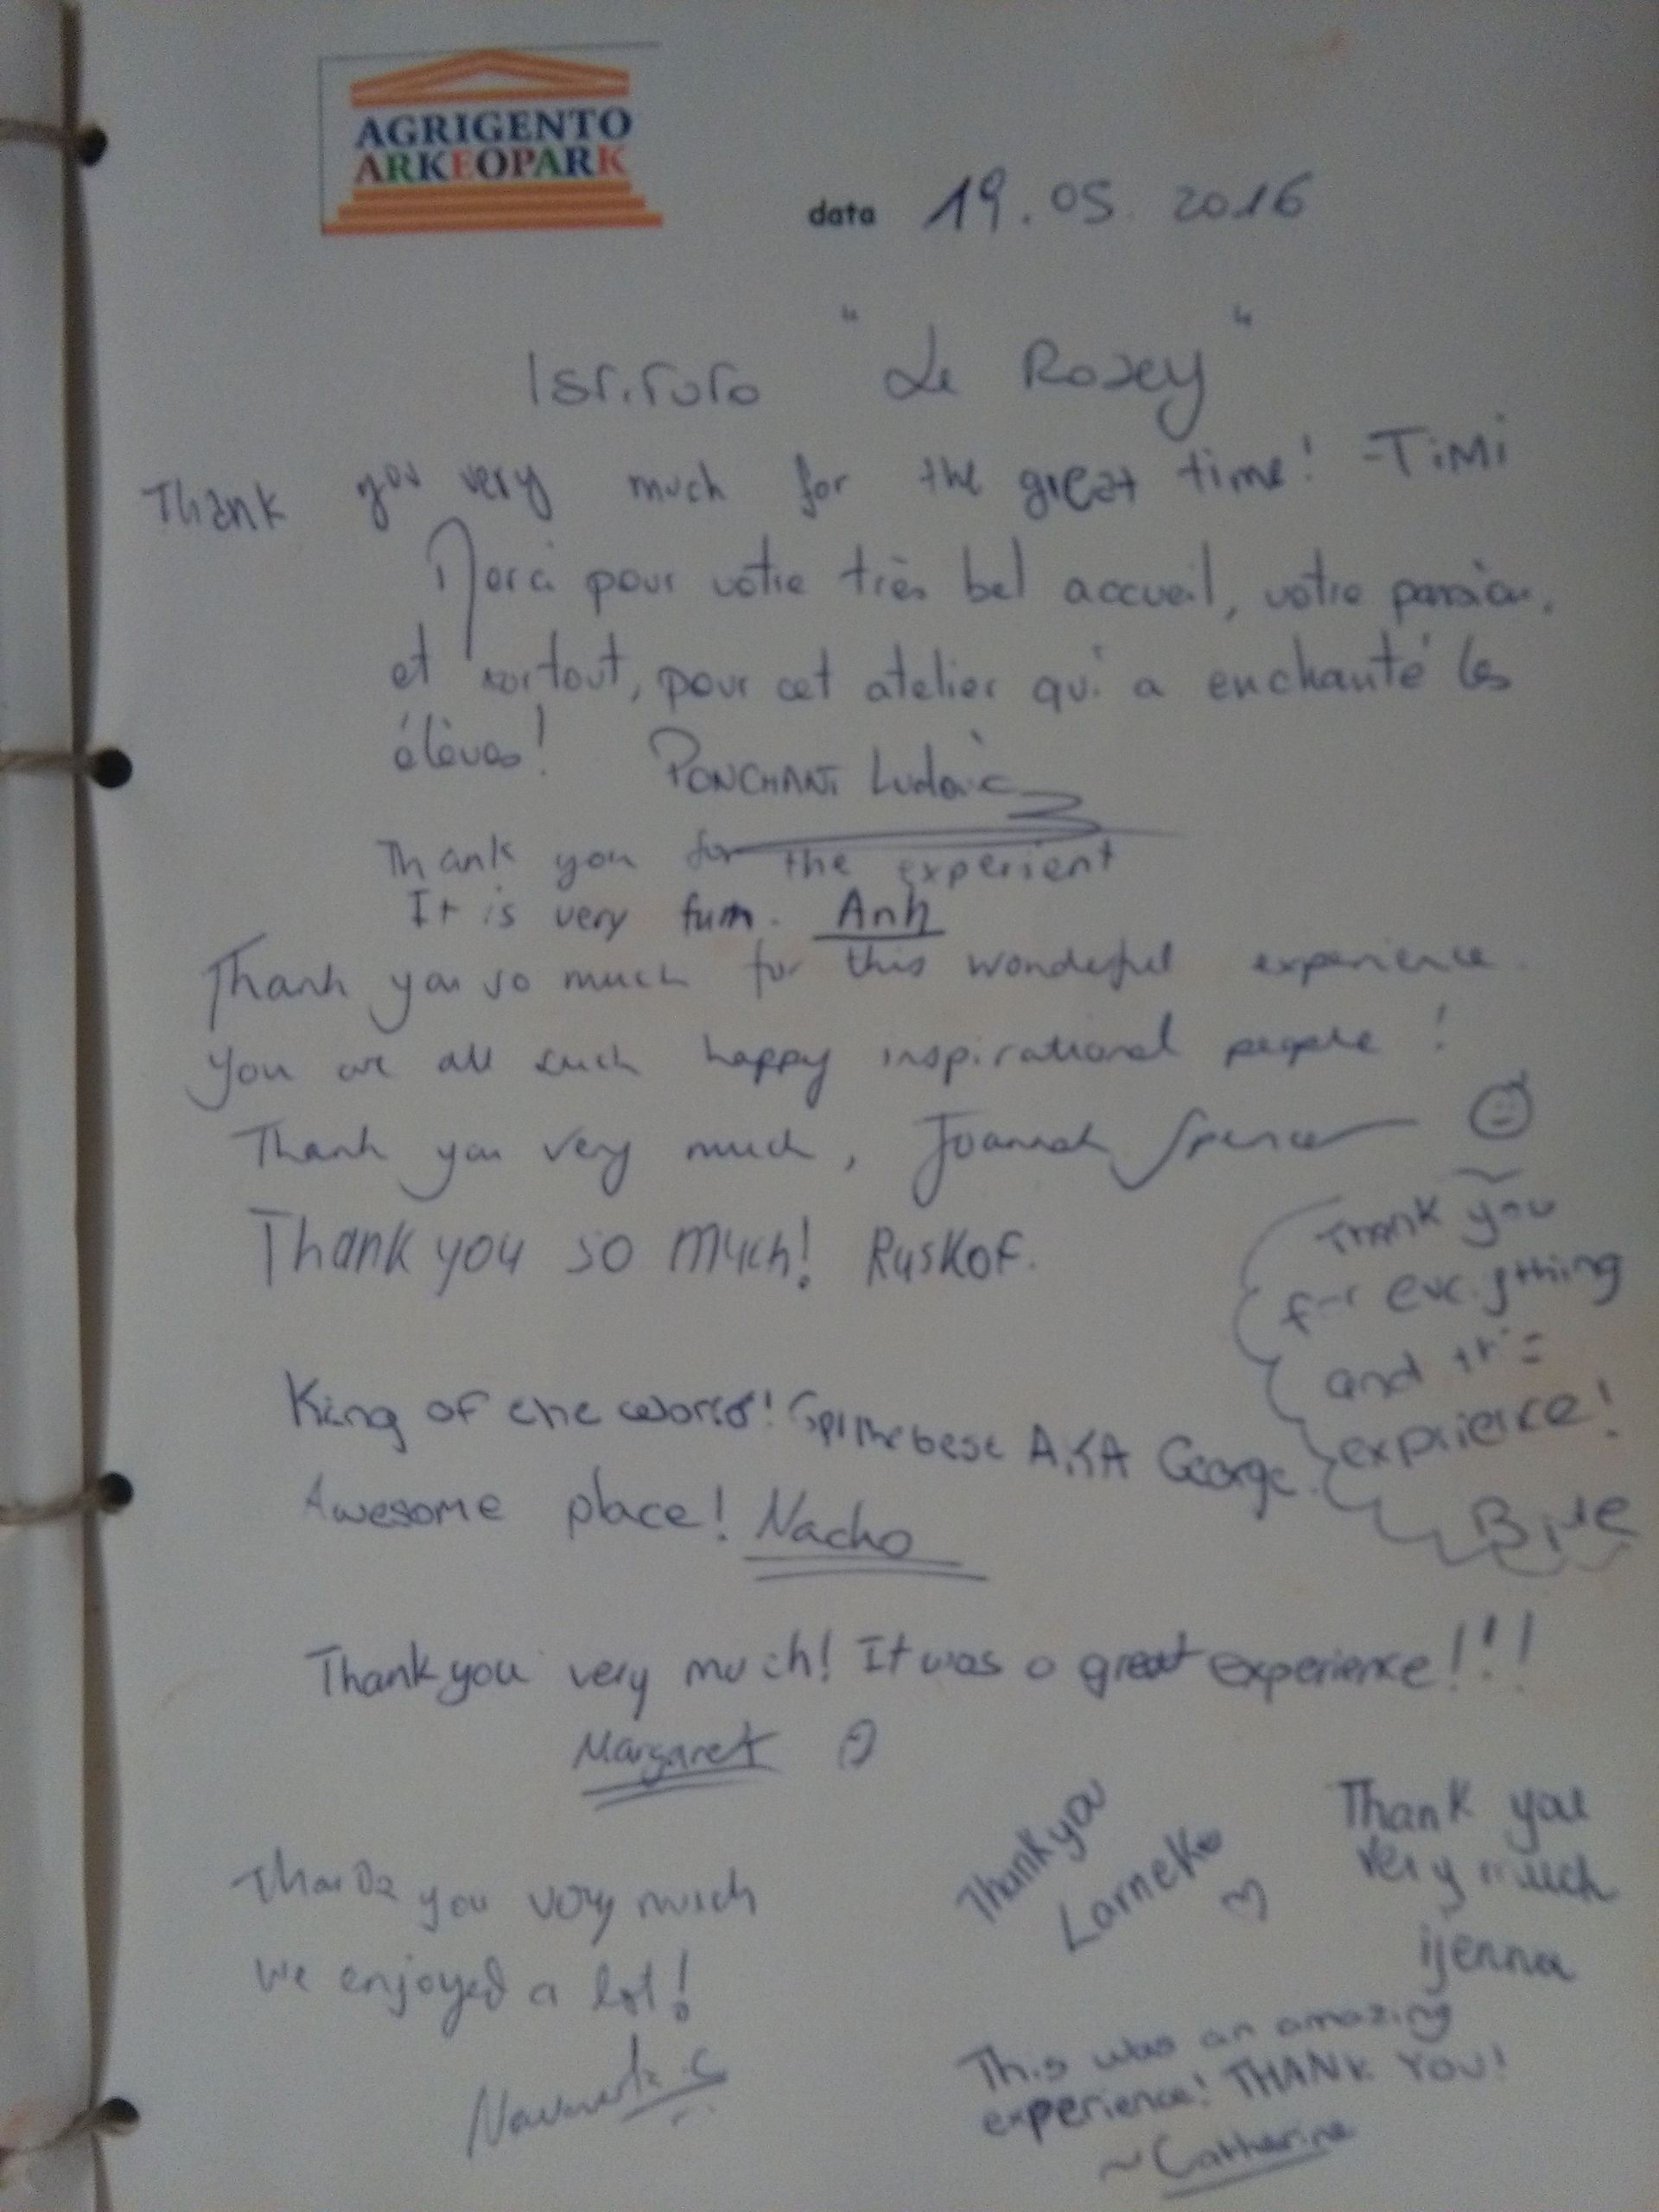 AGRIGENTO
ARKEOPARK
data 19.05.2016
Istituto "Le Rosey"
Thank you very much for the great time! -TiMi
Merci pour votre très bel accueil, votre passion,
et surtout, pour cet atelier qui a enchanté les
élèves! PONCHANT Ludovic
Thank you for the experient
It is very fun. Anh
Thank you so much for this wonderful experience.
You are all such happy inspirational people!
Thank you very much, Joannah Spencer
Thank you so much! Ruskof.
Thank you
for everything
and
experience!
King of the world! the best A.K.A George.
Awesome place! Nacho
Thank you very much! It was a great experience!!!
Margaret
Thank you
Larneke
Thank you
very much
ijenna
you very much
we enjoyed a lot!
This was an amazing
experience! THANK YOU!
~Catherine